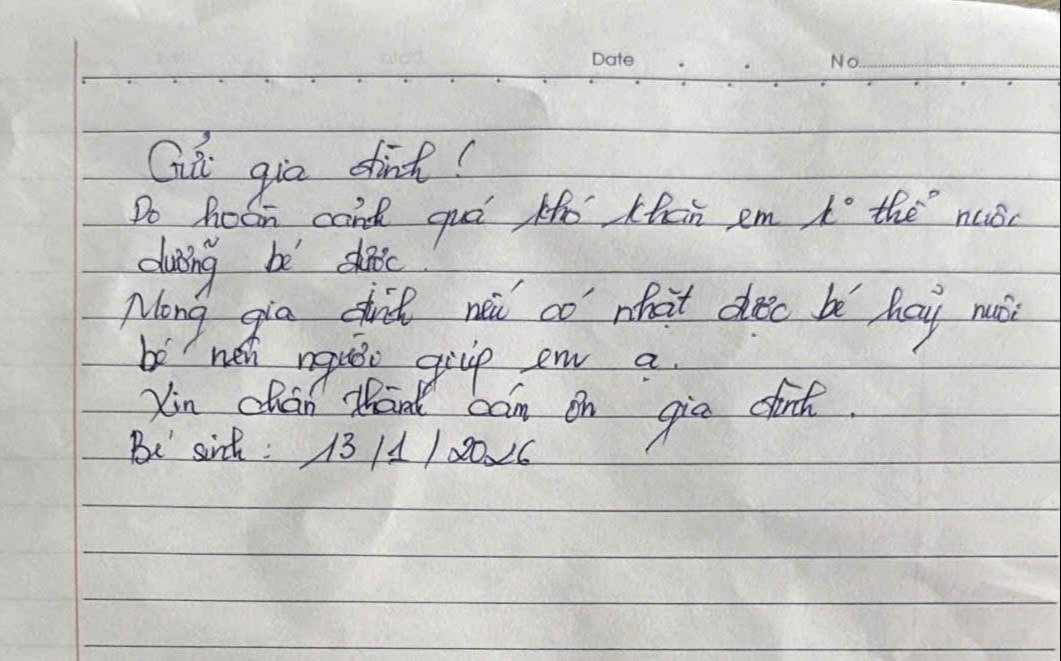 Date . . No
Gửi gia đình!
Do hoàn cảnh quá khó khăn em k° thể nuôi
dưỡng bé được.
Mong gia đình nếu có nhặt được bé hãy nuôi
bé nên người giúp em ạ.
Xin chân thành cảm ơn gia đình.
Bé sinh: 13/1/2026